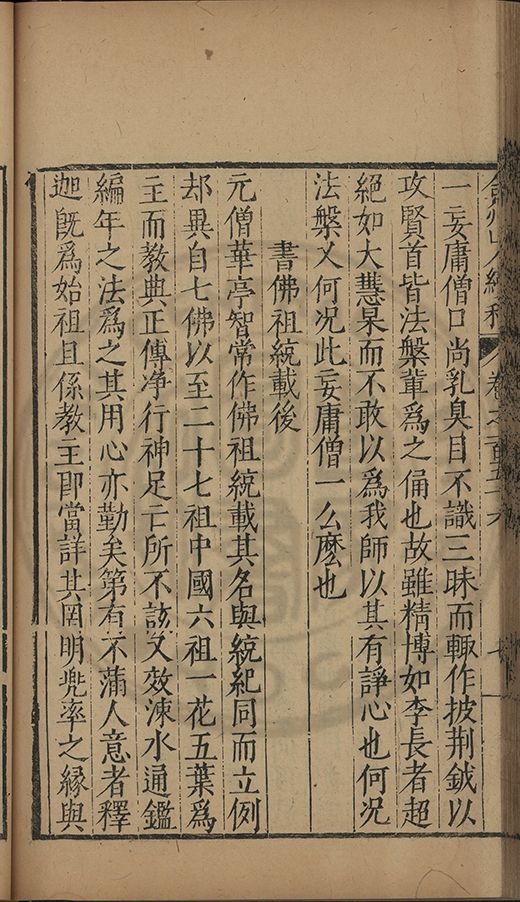 弇州山人續稿 卷之一百五十六
一妄庸僧口尚乳臭目不識三昧而輒作披荆鉞以
攻賢首皆法槃輩爲之俑也故雖精博如李長者超
絕如大慧杲而不敢以爲我師以其有諍心也何況
法槃又何況此妄庸僧一么麽也
書佛祖統載後
元僧華亭智常作佛祖統載其名與統紀同而立例
却異自七佛以至二十七祖中國六祖一花五葉爲
主而教典正傳净行神足亡所不該又效涑水通鑑
編年之法爲之其用心亦勤矣第有不滿人意者釋
迦旣爲始祖且係教主卽當詳其罔明兠率之緣與